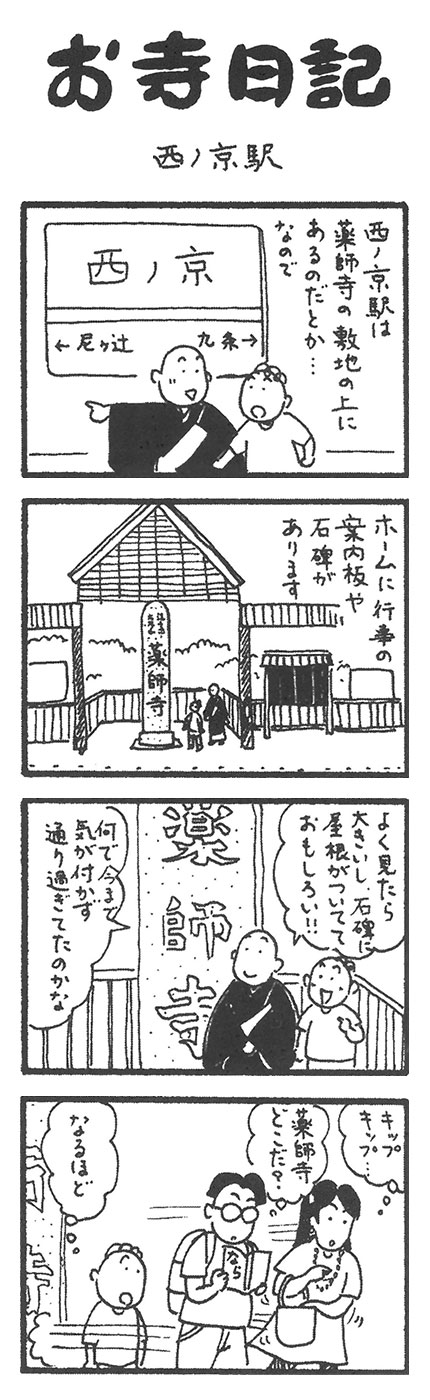 お寺日記
西ノ京駅
西ノ京駅は
薬師寺の敷地の上に
あるのだとか…
なので
西ノ京
←尼ヶ辻
九条→
ホームに行事の
案内板や
石碑が
あります
薬師寺
よく見たら
大きいし、石碑に
屋根がついてて
おもしろい!!
何で今まで
気が付かず
通り過ぎてたのかな
薬師寺
キップ
キップ…
薬師寺
どこだ?
なら
なるほど